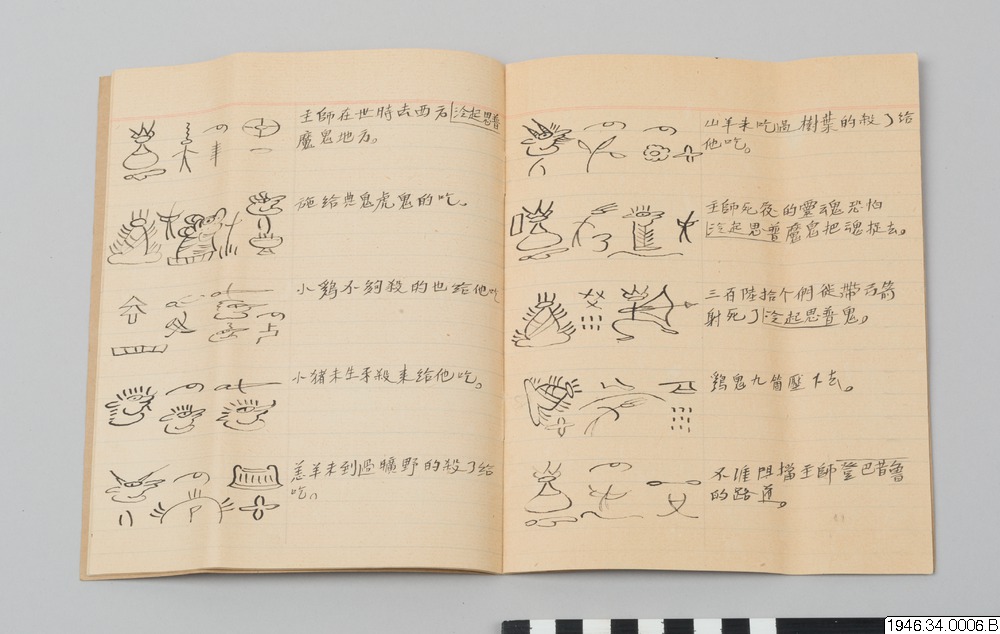 主師在世時去西方泠起思普
魔鬼地方。
施給典鬼虎鬼的吃。
小鷄不夠殺的也給他吃
小猪未生來殺来給他吃。
羔羊未到過曠野的殺了給
吃。
山羊未吃過樹葉的殺了給
他吃。
主師死後的靈魂恐怕
泠起思普魔鬼把魂捉去。
三百陸拾个們徒帶弓箭
射死了泠起思普鬼。
鷄鬼九箇壓下去。
不准阻擋主師登巴昔魯
的路道。
1946.34.0006.B